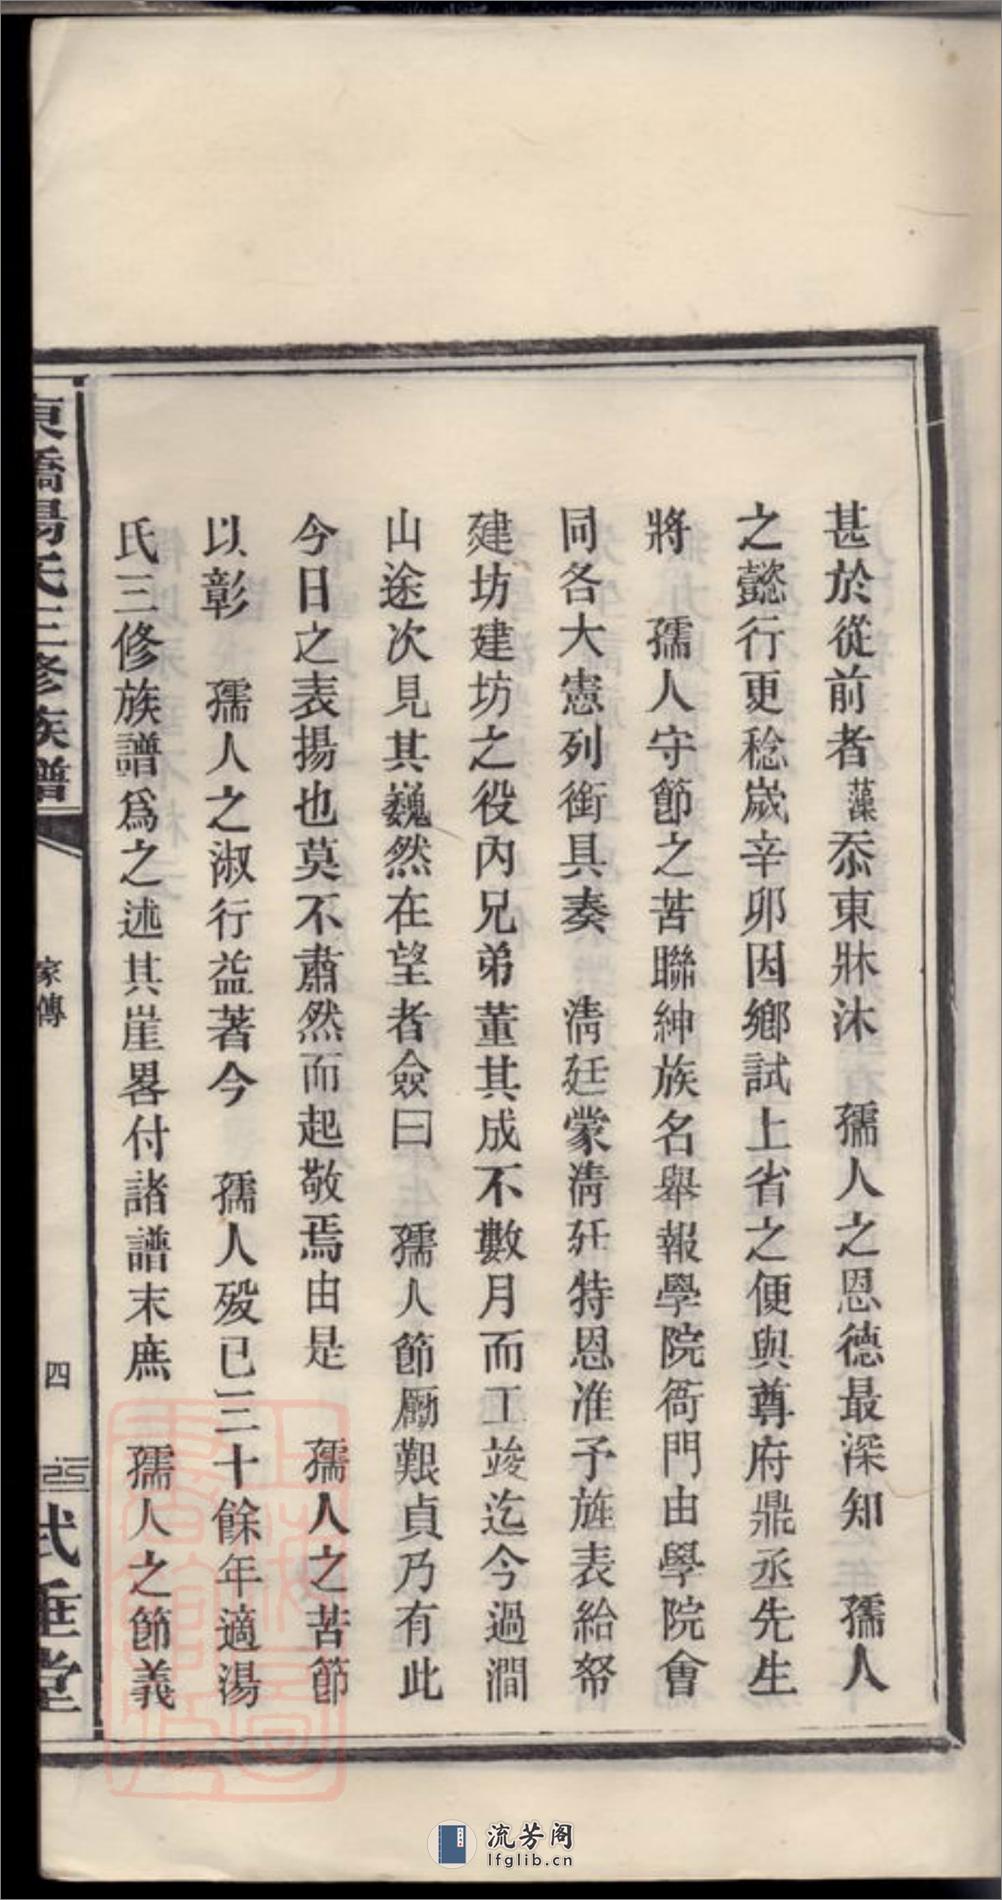 甚於從前者藻忝東牀沐　孺人之恩德最深知　孺人
之懿行更稔歲辛卯因鄉試上省之便與尊府鼎丞先生
將　孺人守節之苦聯紳族名舉報學院衙門由學院會
同各大憲列銜具奏　淸廷蒙淸廷特恩准予旌表給帑
建坊建坊之役內兄弟董其成不數月而工竣迄今過澗
山途次見其巍然在望者僉曰　孺人節勵艱貞乃有此
今日之表揚也莫不肅然而起敬焉由是　孺人之苦節
以彰　孺人之淑行益著今　孺人歿已三十餘年適湯
氏三修族譜爲之述其崖畧付諸譜末庶　孺人之節義
東橋湯氏三修族譜
家傳
四
式垂堂
流芳阁
lfglib.cn